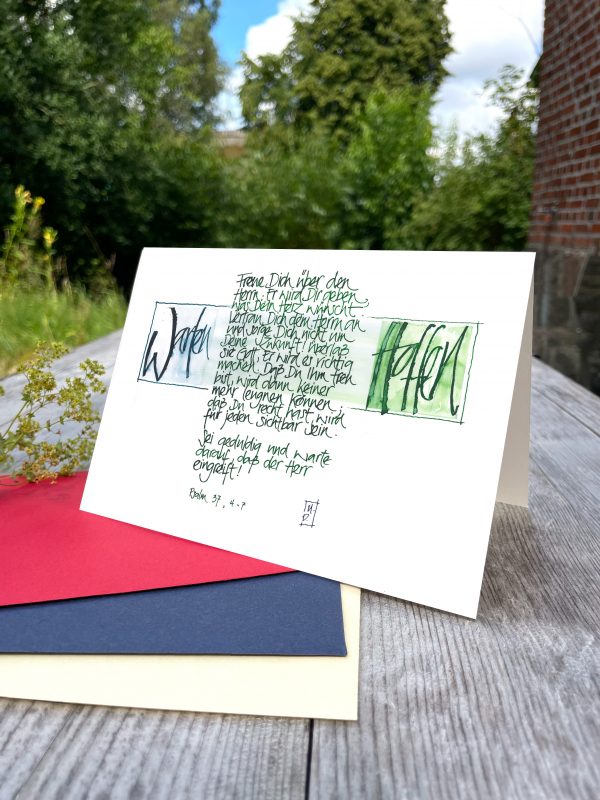 Freue Dich über den
Herrn. Er wird Dir geben,
was Dein Herz wünscht.
Vertrau Dich dem Herrn an
und sorge Dich nicht um
Deine Zukunft! Überlaß
sie Gott, Er wird es richtig
machen. Daß Du Ihm treu
bist, wird dann keiner
mehr leugnen können,
daß Du recht hast, wird
für jeden sichtbar sein.
Sei geduldig und warte
darauf, daß der Herr
eingreift!
Psalm 37, 4-7
Warten
Hoffen